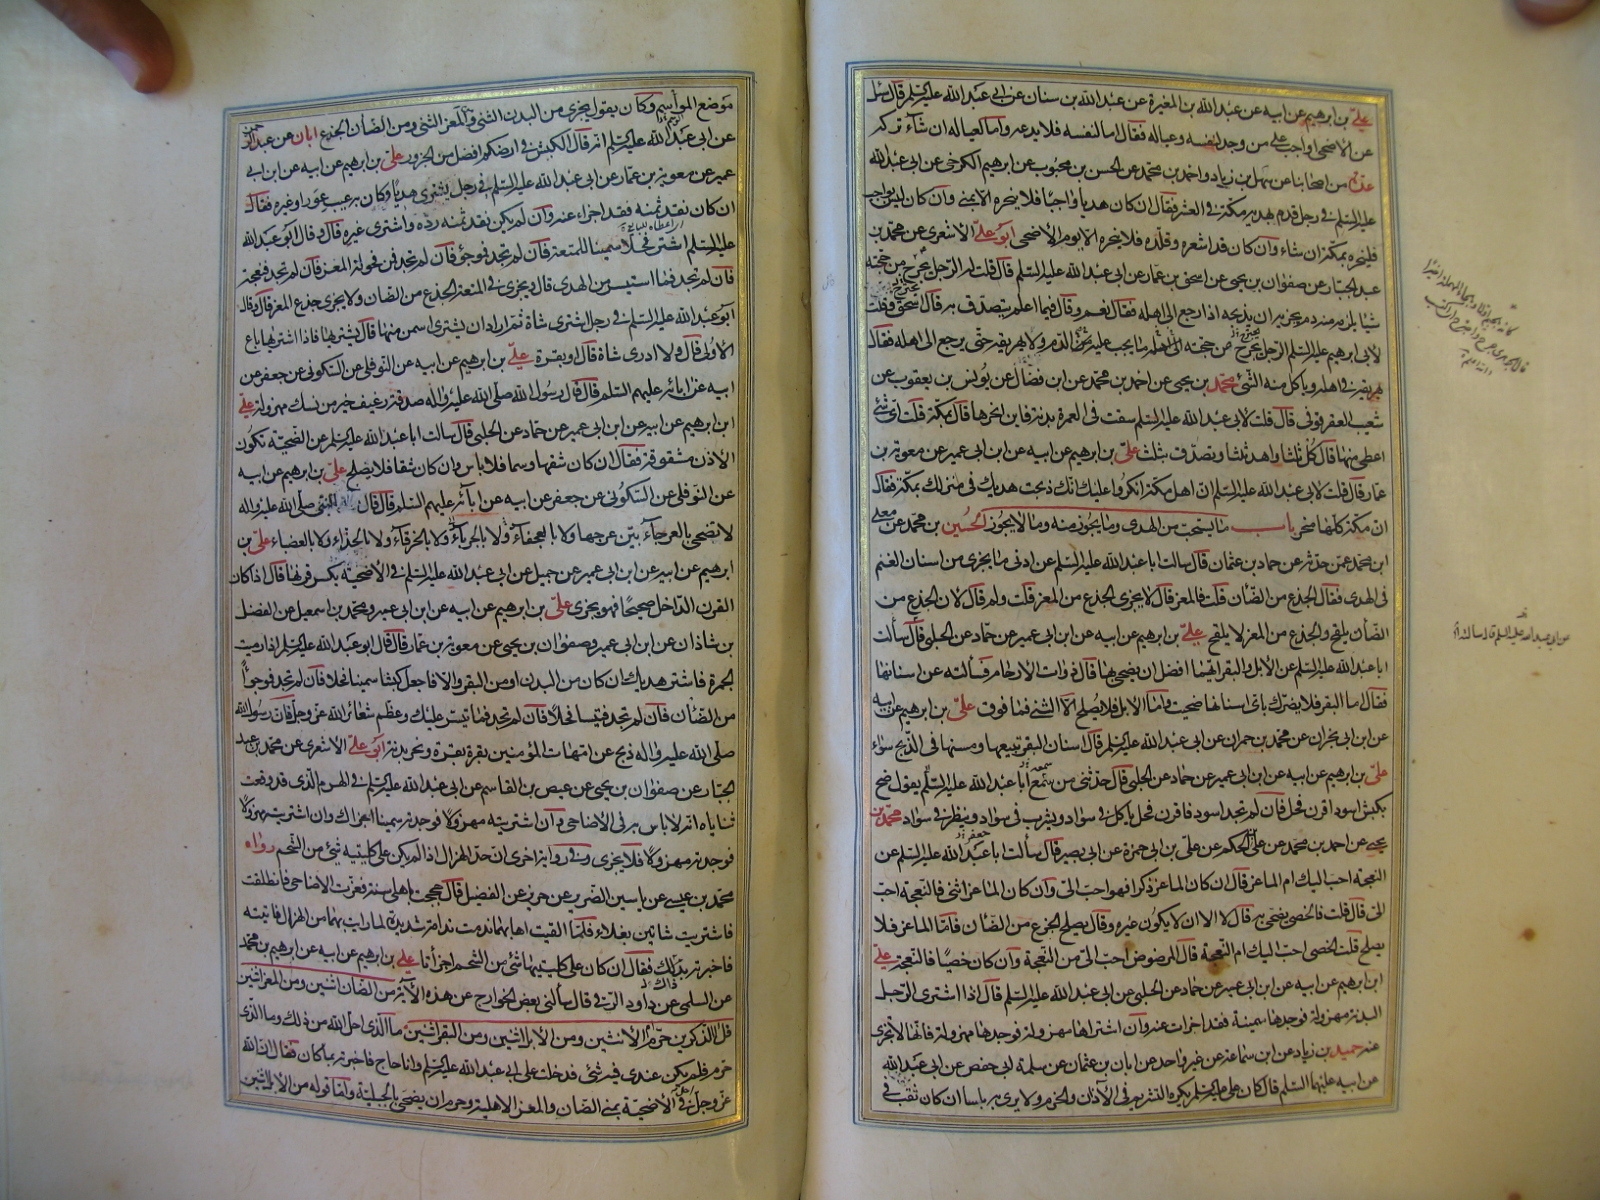 علي بن ابرهيم عن ابيه عن عبد الله بن المغيرة عن عبد الله بن سنان عن ابي عبد الله عليه السلم قال سئل
عن الاضحى اواجب على من وجد لنفسه وعياله فقال اما لنفسه فلا يدعه واما لعياله ان شاء تركه
عدة من اصحابنا عن سهل بن زياد واحمد بن محمد عن الحسن بن محبوب عن ابرهيم الكرخي عن ابي عبد الله
عليه السلم في رجل قدم بهديه مكة في العشر فقال ان كان هديا واجبا فلا ينحره الا بمنى وان كان ليس بواجب
فلينحره بمكة ان شاء وان كان قد اشعره وقلده فلا ينحره الا يوم الاضحى ابو علي الاشعري عن محمد بن
عبد الجبار عن صفوان بن يحيى عن اسحق بن عمار عن ابي عبد الله عليه السلم قال قلت له الرجل يخرج من حجته
شيئا يلزمه منه دم يجزيه ان يذبحه اذا رجع الى اهله فقال نعم وقال فيما اعلم يتصدق به قال اسحق وقلت
لابي ابرهيم عليه السلم الرجل يخرج من حجته ما يجب عليه الدم ولا يهريقه حتى يرجع الى اهله فقال
يهريقه في اهله وياكل منه الشئ محمد بن يحيى عن احمد بن محمد عن ابن فضال عن يونس بن يعقوب عن
شعيب العقرقوفي قال قلت لابي عبد الله عليه السلم سقت في العمرة بدنة فاين انحرها قال بمكة قلت اي شئ
اعطي منها قال كل ثلثا واهد ثلثا وتصدق بثلث علي بن ابرهيم عن ابيه عن ابن ابي عمير عن معوية بن
عمار قال قلت لابي عبد الله عليه السلم ان اهل مكة انكروا عليك انك ذبحت هديك في منزلك بمكة فقال
ان مكة كلها منحر باب ما يستحب من الهدى وما يجوز منه وما لا يجوز الحسين بن محمد عن معلى
ابن محمد عمن حدثه عن حماد بن عثمان قال سالت ابا عبد الله عليه السلم عن ادنى ما يجزى من اسنان الغنم
في الهدى فقال الجذع من الضأن قلت فالمعز قال لا يجزى الجذع من المعز قلت ولم قال لان الجذع من
الضأن يلقح والجذع من المعز لا يلقح علي بن ابرهيم عن ابيه عن ابن ابي عمير عن حماد عن الحلبي قال سألت
ابا عبد الله عليه السلم عن الابل والبقر ايهما افضل ان يضحى بها قال ذوات الارحام فسألته عن اسنانها
فقال اما البقر فلا يضرك باي اسنانها ضحيت واما الابل فلا يصلح الا الثني فما فوق علي بن ابرهيم عن ابيه
عن ابن ابي نجران عن محمد بن حمران عن ابي عبد الله عليه السلم قال اسنان البقر تبيعها ومسنها في الذبح سواء
علي بن ابرهيم عن ابيه عن ابن ابي عمير عن حماد عن الحلبي قال حدثني من سمع ابا عبد الله عليه السلم يقول ضح
بكبش اسود اقرن فحل فان لم تجد اسود فاقرن فحل ياكل في سواد ويشرب في سواد وينظر في سواد محمد بن
يحيى عن احمد بن محمد عن علي بن الحكم عن علي بن ابي حمزة عن ابي بصير قال سألت ابا عبد الله عليه السلم عن
النعجة احب اليك ام الماعز قال ان كان الماعز ذكرا فهو احب الى وان كان الماعز انثى فالنعجة احب
الى قال قلت فالخصي يضحى به قال لا الا ان لا يكون غيره وقال يصلح الجذع من الضأن فاما الماعز فلا
يصلح قلت الخصي احب اليك ام النعجة قال المرضوض احب الى من النعجة وان كان خصيا فالنعجة علي
ابن ابرهيم عن ابيه عن ابن ابي عمير عن حماد عن الحلبي عن ابي عبد الله عليه السلم قال اذا اشترى الرجل
البدنة مهزولة فوجدها سمينة فقد اجزات عنه وان اشتراها مهزولة فوجدها مهزولة فانها لا تجزى
عنه حميد بن زياد عن ابن سماعة عن غير واحد عن ابان بن عثمان عن سلمة ابي حفص عن ابي عبد الله
عن ابيه عليهما السلم قال كان علي عليه السلم يكره التشريم في الآذان والخرم ولا يرى به باسا ان كان ثقب في
عن ابي عبد الله عليه السلم قال سالته
موضع المواسم وكان يقول يجزى من البدن الثني ومن المعز الثني ومن الضأن الجذع ابان عن عبد الرحمن
عن ابي عبد الله عليه السلم انه قال الكبش في ارضكم افضل من الجزور علي بن ابرهيم عن ابيه عن ابن ابي
عمير عن معوية بن عمار عن ابي عبد الله عليه السلم في رجل يشترى هديا وكان به عيب عور او غيره فقال
ان كان نقد ثمنه فقد اجزاء عنه وان لم يكن نقد ثمنه رده واشترى غيره قال وقال ابو عبد الله
عليه السلم اشتر فحلا سمينا للمتعة فان لم تجد فموجوءا فان لم تجد فمن فحولة المعز فان لم تجد فنعجة
فان لم تجد فما استيسر من الهدى قال ويجزى في المتعة الجذع من الضأن ولا يجزى جذع المعز قال وقال
ابو عبد الله عليه السلم في رجل اشترى شاة ثم اراد ان يشترى اسمن منها قال يشتريها فاذا اشتريها باع
الاولى قال ولا ادرى شاة قال او بقرة علي بن ابرهيم عن ابيه عن النوفلي عن السكوني عن جعفر عن
ابيه عن ابائه عليهم السلم قال قال رسول الله صلى الله عليه واله صدقة رغيف خير من نسك مهزولة علي
ابن ابرهيم عن ابيه عن ابن ابي عمير عن حماد عن الحلبي قال سالت ابا عبد الله عليه السلم عن الضحية تكون
الاذن مشقوقة فقال ان كان شقها وسما فلا باس وان كان شقا فلا يصلح علي بن ابرهيم عن ابيه
عن النوفلي عن السكوني عن جعفر عن ابيه عن ابائه عليهم السلم قال قال النبي صلى الله عليه واله
لا تضحى بالعرجاء بين عرجها ولا بالعجفاء ولا بالجرباء ولا بالخرقاء ولا بالحذاء ولا بالعضباء علي بن
ابرهيم عن ابيه عن ابن ابي عمير عن جميل عن ابي عبد الله عليه السلم في الاضحية يكسر قرنها قال اذا كان
القرن الداخل صحيحا فهو يجزى علي بن ابرهيم عن ابيه عن ابن ابي عمير ومحمد بن اسمعيل عن الفضل
بن شاذان عن ابن ابي عمير وصفوان بن يحيى عن معوية بن عمار قال قال ابو عبد الله عليه السلم اذا رميت
الجمرة فاشتر هديك ان كان من البدن او من البقر والا فاجعل كبشا سمينا فحلا فان لم تجد فموجوءا
من الضأن فان لم تجد فتيسا فحلا فان لم تجد فما تيسر عليك وعظم شعائر الله عز وجل فان رسول الله
صلى الله عليه واله ذبح عن امهات المؤمنين بقرة بقرة ونحر بدنة ابو علي الاشعري عن محمد بن عبد
الجبار عن صفوان بن يحيى عن عيص بن القاسم عن ابي عبد الله عليه السلم في الهرم الذى قد وقعت
ثناياه انه لا باس به في الاضاحي وان اشتريته مهزولا فوجدته سمينا اجزاك وان اشتريت مهزولا
فوجدته مهزولا فلا يجزى وفي رواية اخرى ان حد الهزال اذا لم يكن على كليتيه شئ من الشحم رواه
محمد بن عيسى عن ياسين الضرير عن حريز عن الفضل قال حججت باهلي سنة فعزت الاضاحي فانطلقت
فاشتريت شاتين بغلاء فلما القيت اهابهما ندمت ندامة شديدة لما رايت بهما من الهزال فاتيته
فاخبرته بذلك فقال ان كان على كليتيها شئ من الشحم اجزأتا علي بن ابرهيم عن ابيه عن ابرهيم بن محمد
عن السلمي عن داود الرقي قال سألني بعض الخوارج عن هذه الآية من الضأن اثنين ومن المعز اثنين
قل الذكرين حرم ام الانثيين ومن الابل اثنين ومن البقر اثنين ما الذى احل الله من ذلك وما الذى
حرم فلم يكن عندي فيه شئ فدخلت على ابي عبد الله عليه السلم وانا حاج فاخبرته بما كان فقال ان الله
عز وجل في الاضحية بمنى الضأن والمعز الاهلية وحرم ان يضحى بالجبلية واما قوله من الابل اثنين